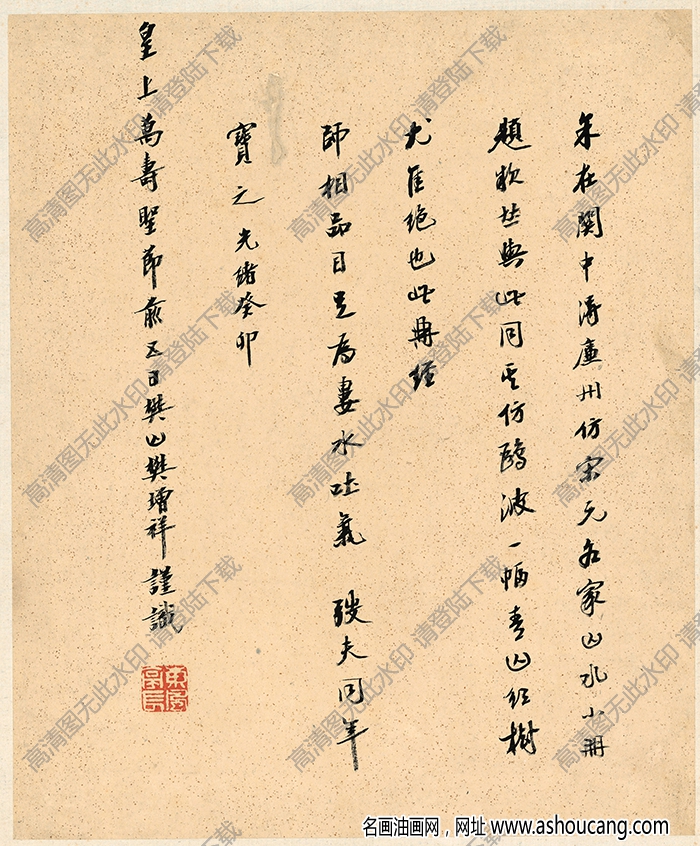 余在關中得廉州仿宋元名家山水小冊
題款悉與此同其仿鷗波一幀青山紅樹
尤佳絕也此冊經
師相品目足為婁水吐氣 夫同年
寶之光緒癸卯
皇上萬壽聖節前五日樊山樊增祥謹識
高清图无此水印 请登陆下载
名画油画网，网址 www.ashoucang.com